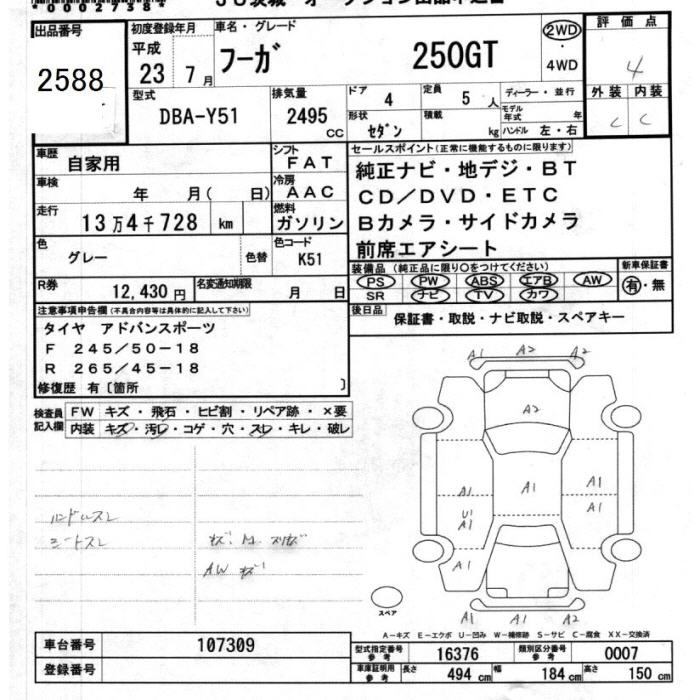 *00027384
JU茨城 オークション出品申込書
出品番号 初度登録年月 車名・グレード 評価点
2588 平成 23 7月 フーガ 250GT 2WD・4WD 4
型式 排気量 ドア 4 定員 5人 ディーラー・並行 外装 内装
DBA-Y51 2495 CC 形状 セダン 積載 kg モデル年式 年 ハンドル 左・右 C C
車歴 自家用 シフト FAT セールスポイント(正常に機能するものに限ります)
車検 年 月( 日) 冷房 AAC 純正ナビ・地デジ・BT
走行 13万4千728 km 燃料 ガソリン CD/DVD・ETC
Bカメラ・サイドカメラ
色 グレー 色替 色コード K51 前席エアシート
装備品(純正品に限り○をつけてください) 新車保証書
R券 12,430円 名変通知期限 月 日 PS PW ABS エアB AW 有・無
SR ナビ TV カワ
注意事項申告欄(不具合内容等は具体的に記入して下さい) 後日品 保証書・取説・ナビ取説・スペアキー
タイヤ アドバンスポーツ
F 245/50-18
R 265/45-18
修復歴 有〔箇所 〕
検査員記入欄 FW キズ・飛石・ヒビ割・リペア跡・×要
内装 キズ・汚レ・コゲ・穴・スレ・キレ・破レ
A1 A2 A2
A2
A1 A1 A1
U1 A1
A1
A1
ハンドルスレ
シートスレ キズ・
A.W キズ
スペア
A1 A1 A2
A-キズ E-エクボ U-凹み W-補修跡 S-サビ C-腐食 XX-交換済
車台番号 107309 型式指定番号 参考 16376 類別区分番号 参考 0007
登録番号 車庫証明用 参考 長さ 494 cm 幅 184 cm 高さ 150 cm